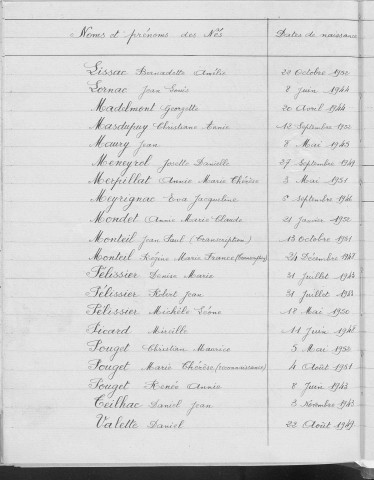 Noms et prénoms des Nés Dates de naissance
Lissac Bernadette Amélie 20 Octobre 1952
Lornac Jean 8 Juin 1944
Madelmont Georgette 20 Avril 1944
Masdupuy Christiane Année 12 Septembre 1952
Maury Jean 8 Mai 1943
Meneyrol Josette Danielle 27 Septembre 1949
Merpillat Annie Marie Thérèse 3 Mai 1951
Meyrignac Eva Jacqueline 5 Septembre 1946
Mondet Annie Marie Claude 21 Janvier 1950
Monteil Jean Paul (transcription) 13 Octobre 1951
Monteil Régine Marie France (transcription) 24 Décembre 1948
Pélissier Denise Marie 31 Juillet 1943
Pélissier Robert Jean 31 Juillet 1943
Pélissier Michèle Léone 18 Mai 1950
Picard Mireille 11 Juin 1948
Pouget Christian Maurice 5 Mai 1952
Pouget Marie Thérèse (reconnaissance) 4 Août 1951
Pouget Renée Annie 8 Juin 1943
Teilhac Daniel Jean 3 Novembre 1943
Valette Daniel 22 Août 1949